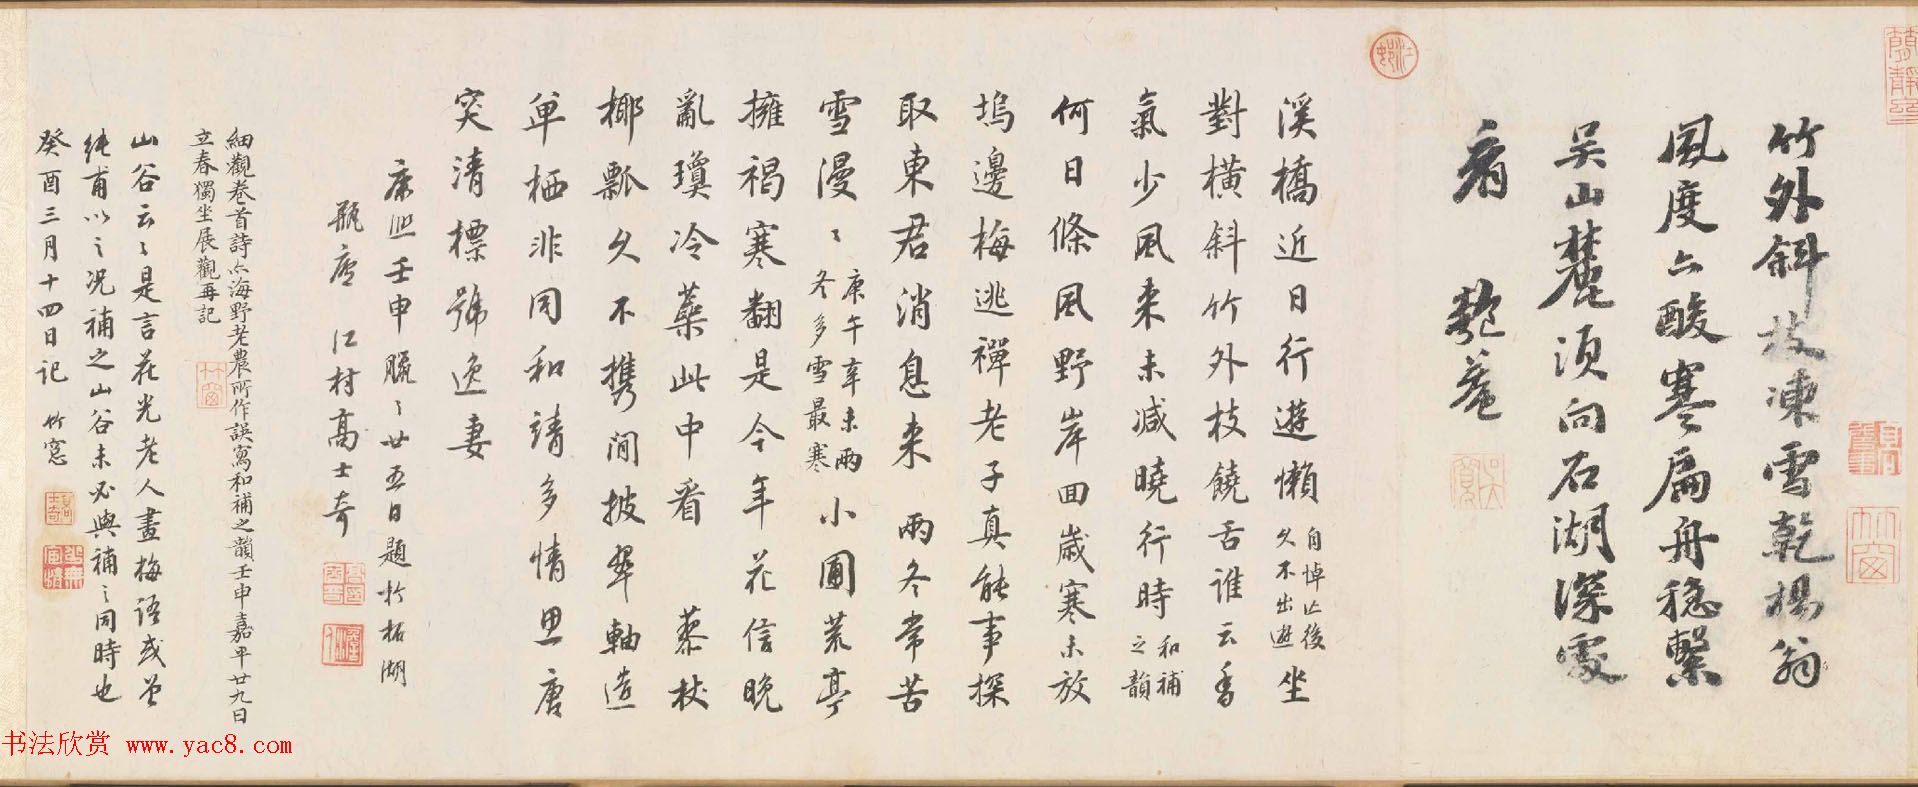 竹外斜枝凍雪乾楊翁
風度亠酸寒扁舟穩繫
吳山麓須向石湖深處
看　匏菴
溪橋近日行遊懶自悼亡後久不出遊坐
對橫斜竹外枝饒舌誰云香
氣少風來未減曉行時和補之韻
何日條風野岸回歲寒未放
塢邊梅逃禪老子真能事探
取東君消息來　兩冬常苦
雪漫〻庚午辛未兩冬多雪最寒小圃荒亭
擁褐寒翻是今年花信晚
亂瓊冷蘂此中看　藜杖
椰瓢久不携閒披翠軸造
單栖非同和靖多情思唐
突清標號逸妻
康熙壬申臘〻廿五日題於柘湖
瓶廬　江村高士奇
細觀卷首詩亠海野老農所作誤寫和補之韻壬申嘉平廿九日
立春獨坐展觀再記
山谷云〻是言花光老人畫梅語或曾
純甫以之況補之山谷未必與補之同時也
癸酉三月十四日记　竹窓
书法欣赏 www.yac8.com